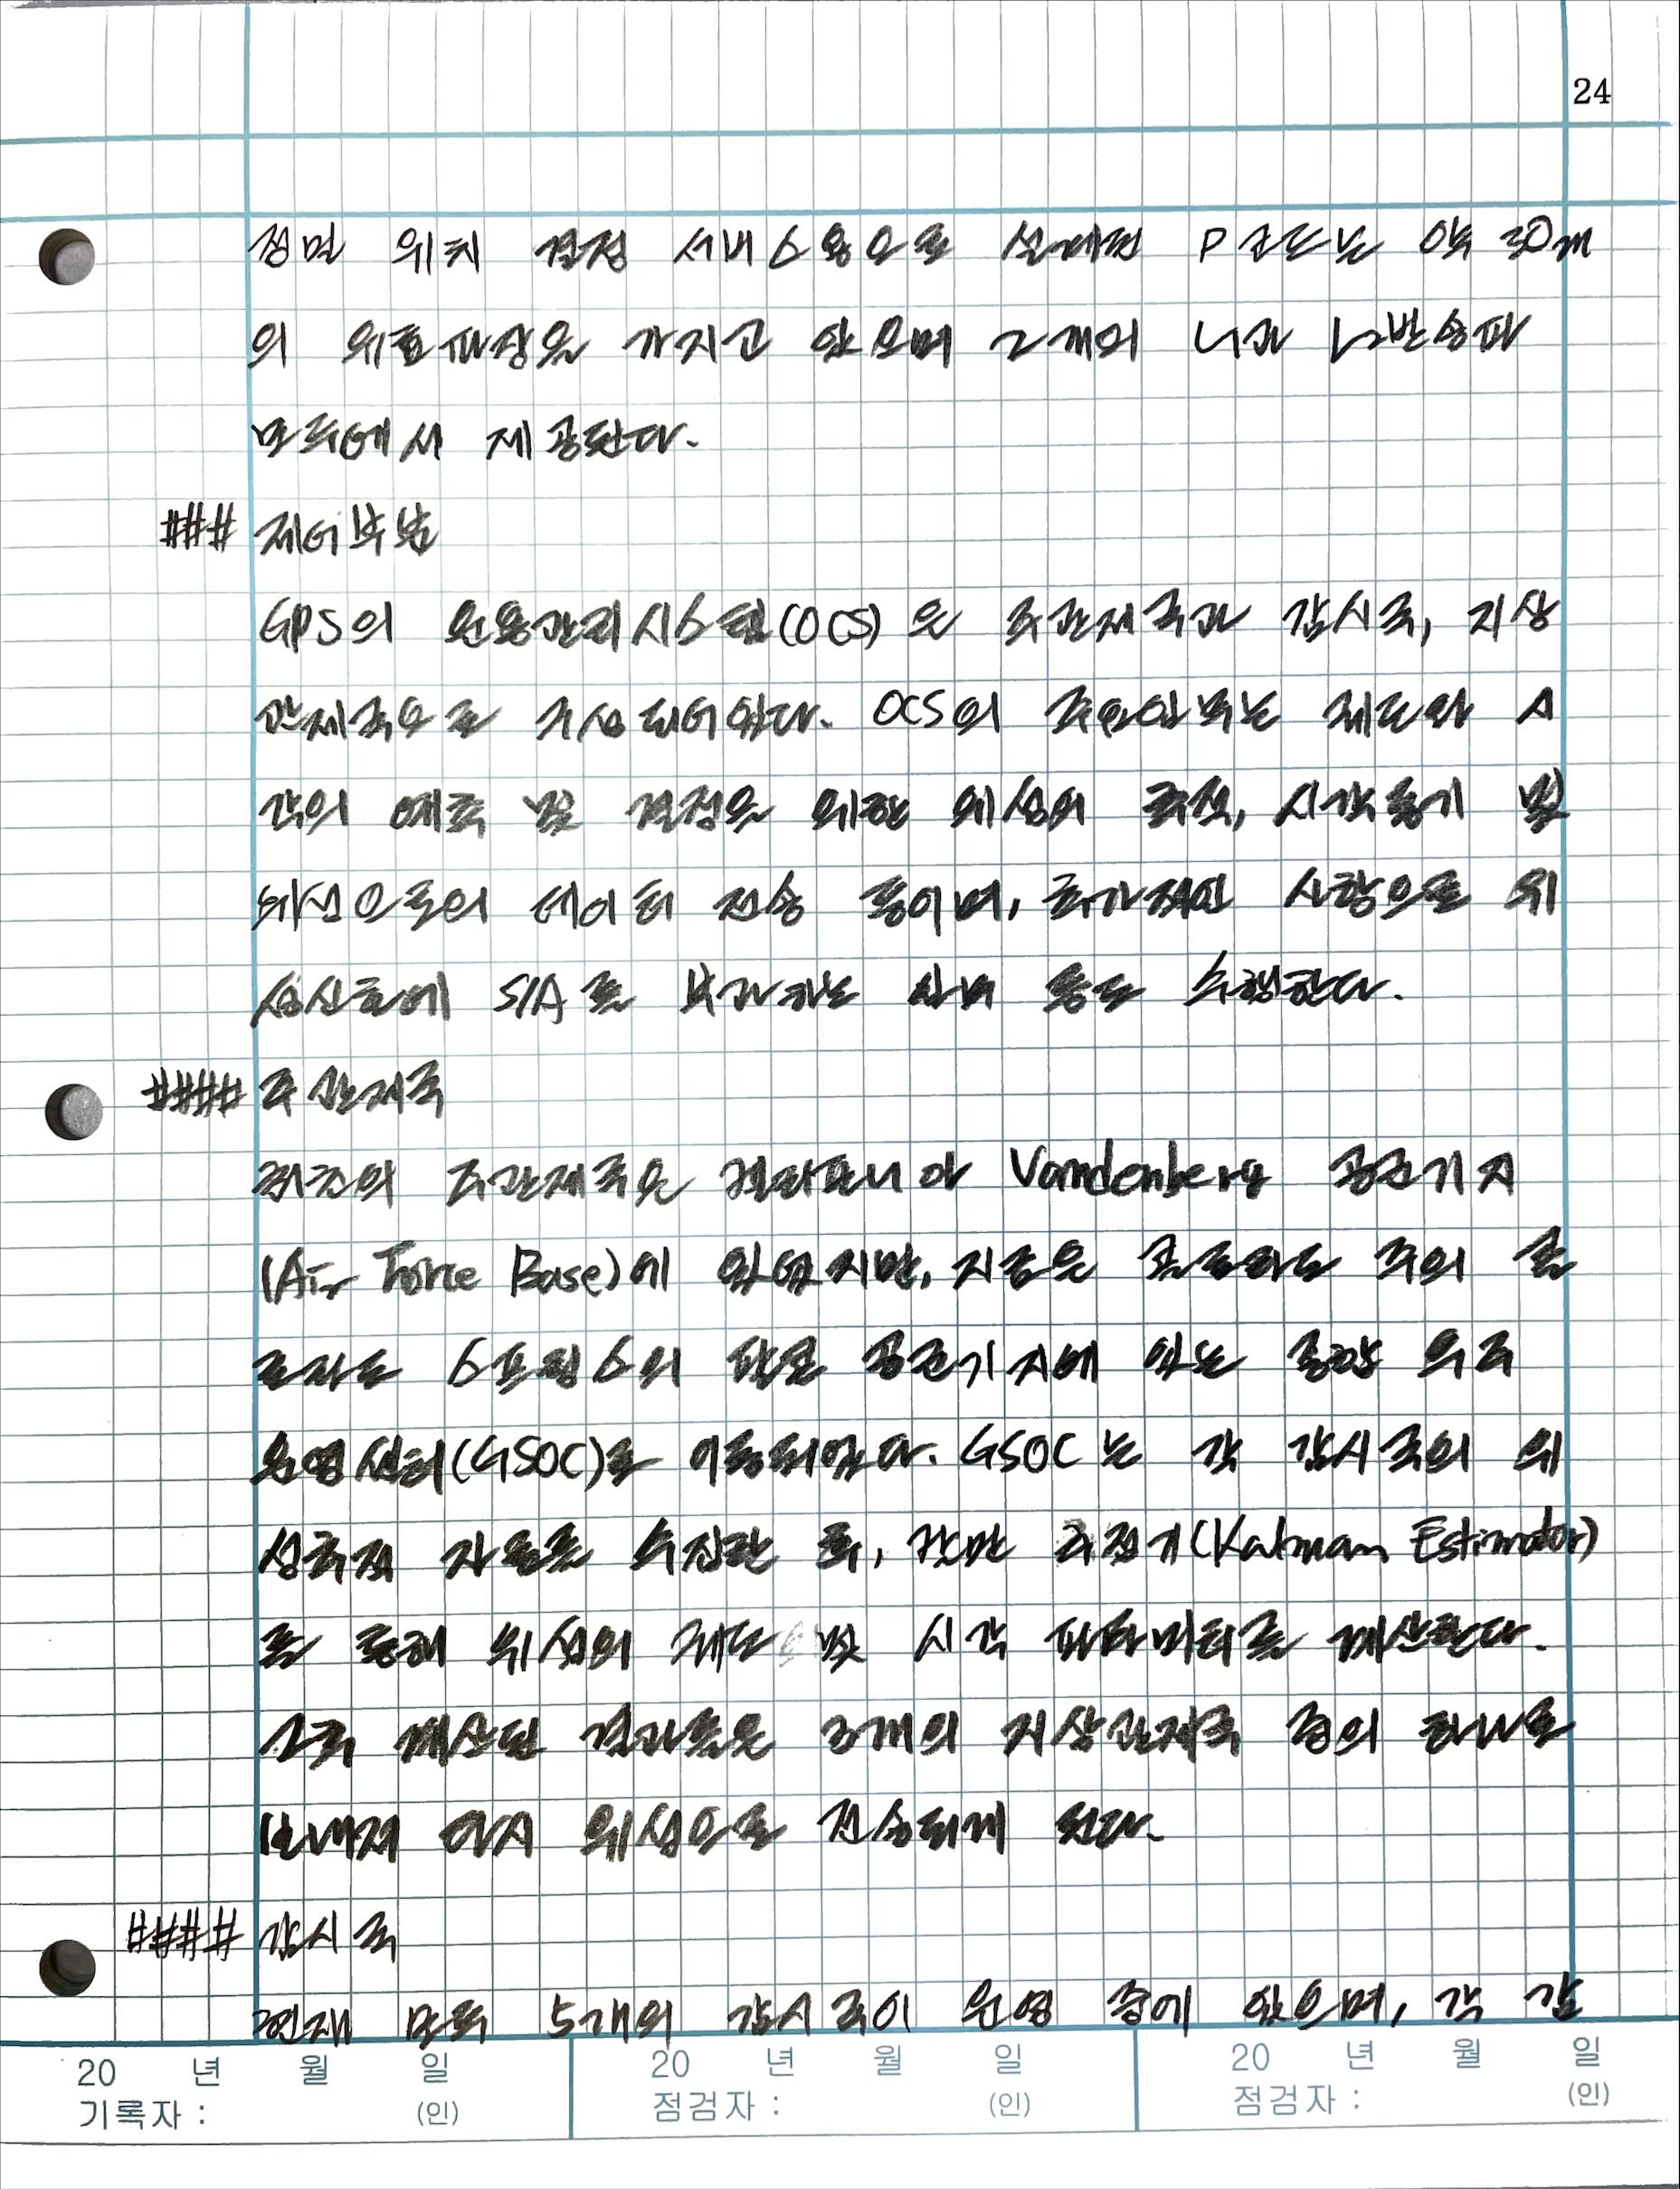 24
정밀 위치 결정 서비스용으로 설계된 P코드는 약 30m
의 유효파장을 가지고 있으며 2개의 L1과 L2반송파
모두에서 제공된다.
### 제어부분
GPS의 운용관리시스템(OCS)은 주관제국과 감시국, 지상
관제국으로 구성되어있다. OCS의 주요임무는 궤도와 시
각의 예측 및 결정을 위한 위성의 추적, 시각동기 및
위성으로의 데이터 전송 등이며, 추가적인 사항으로 위
성신호에 S/A를 부과하는 업무 등도 수행한다.
#### 주관제국
최초의 주관제국은 캘리포니아 Vandenberg 공군기지
(Air Force Base)에 있었지만, 지금은 콜로라도 주의 콜
로라도 스프링스의 팔콘 공군기지에 있는 종합 우주
운영센터(GSOC)로 이동되었다. GSOC는 각 감시국의 위
성추적 자료를 수집한 후, 칼만 추정기(Kalman Estimator)
를 통해 위성의 궤도 및 시각 파라미터를 계산한다.
그후 계산된 결과들은 3개의 지상관제국 중의 하나로
보내져 다시 위성으로 전송되게 된다.
#### 감시국
현재 모두 5개의 감시국이 운영 중에 있으며, 각 감
20 년 월 일 20 년 월 일 20 년 월 일
기록자 : (인) 점검자 : (인) 점검자 : (인)